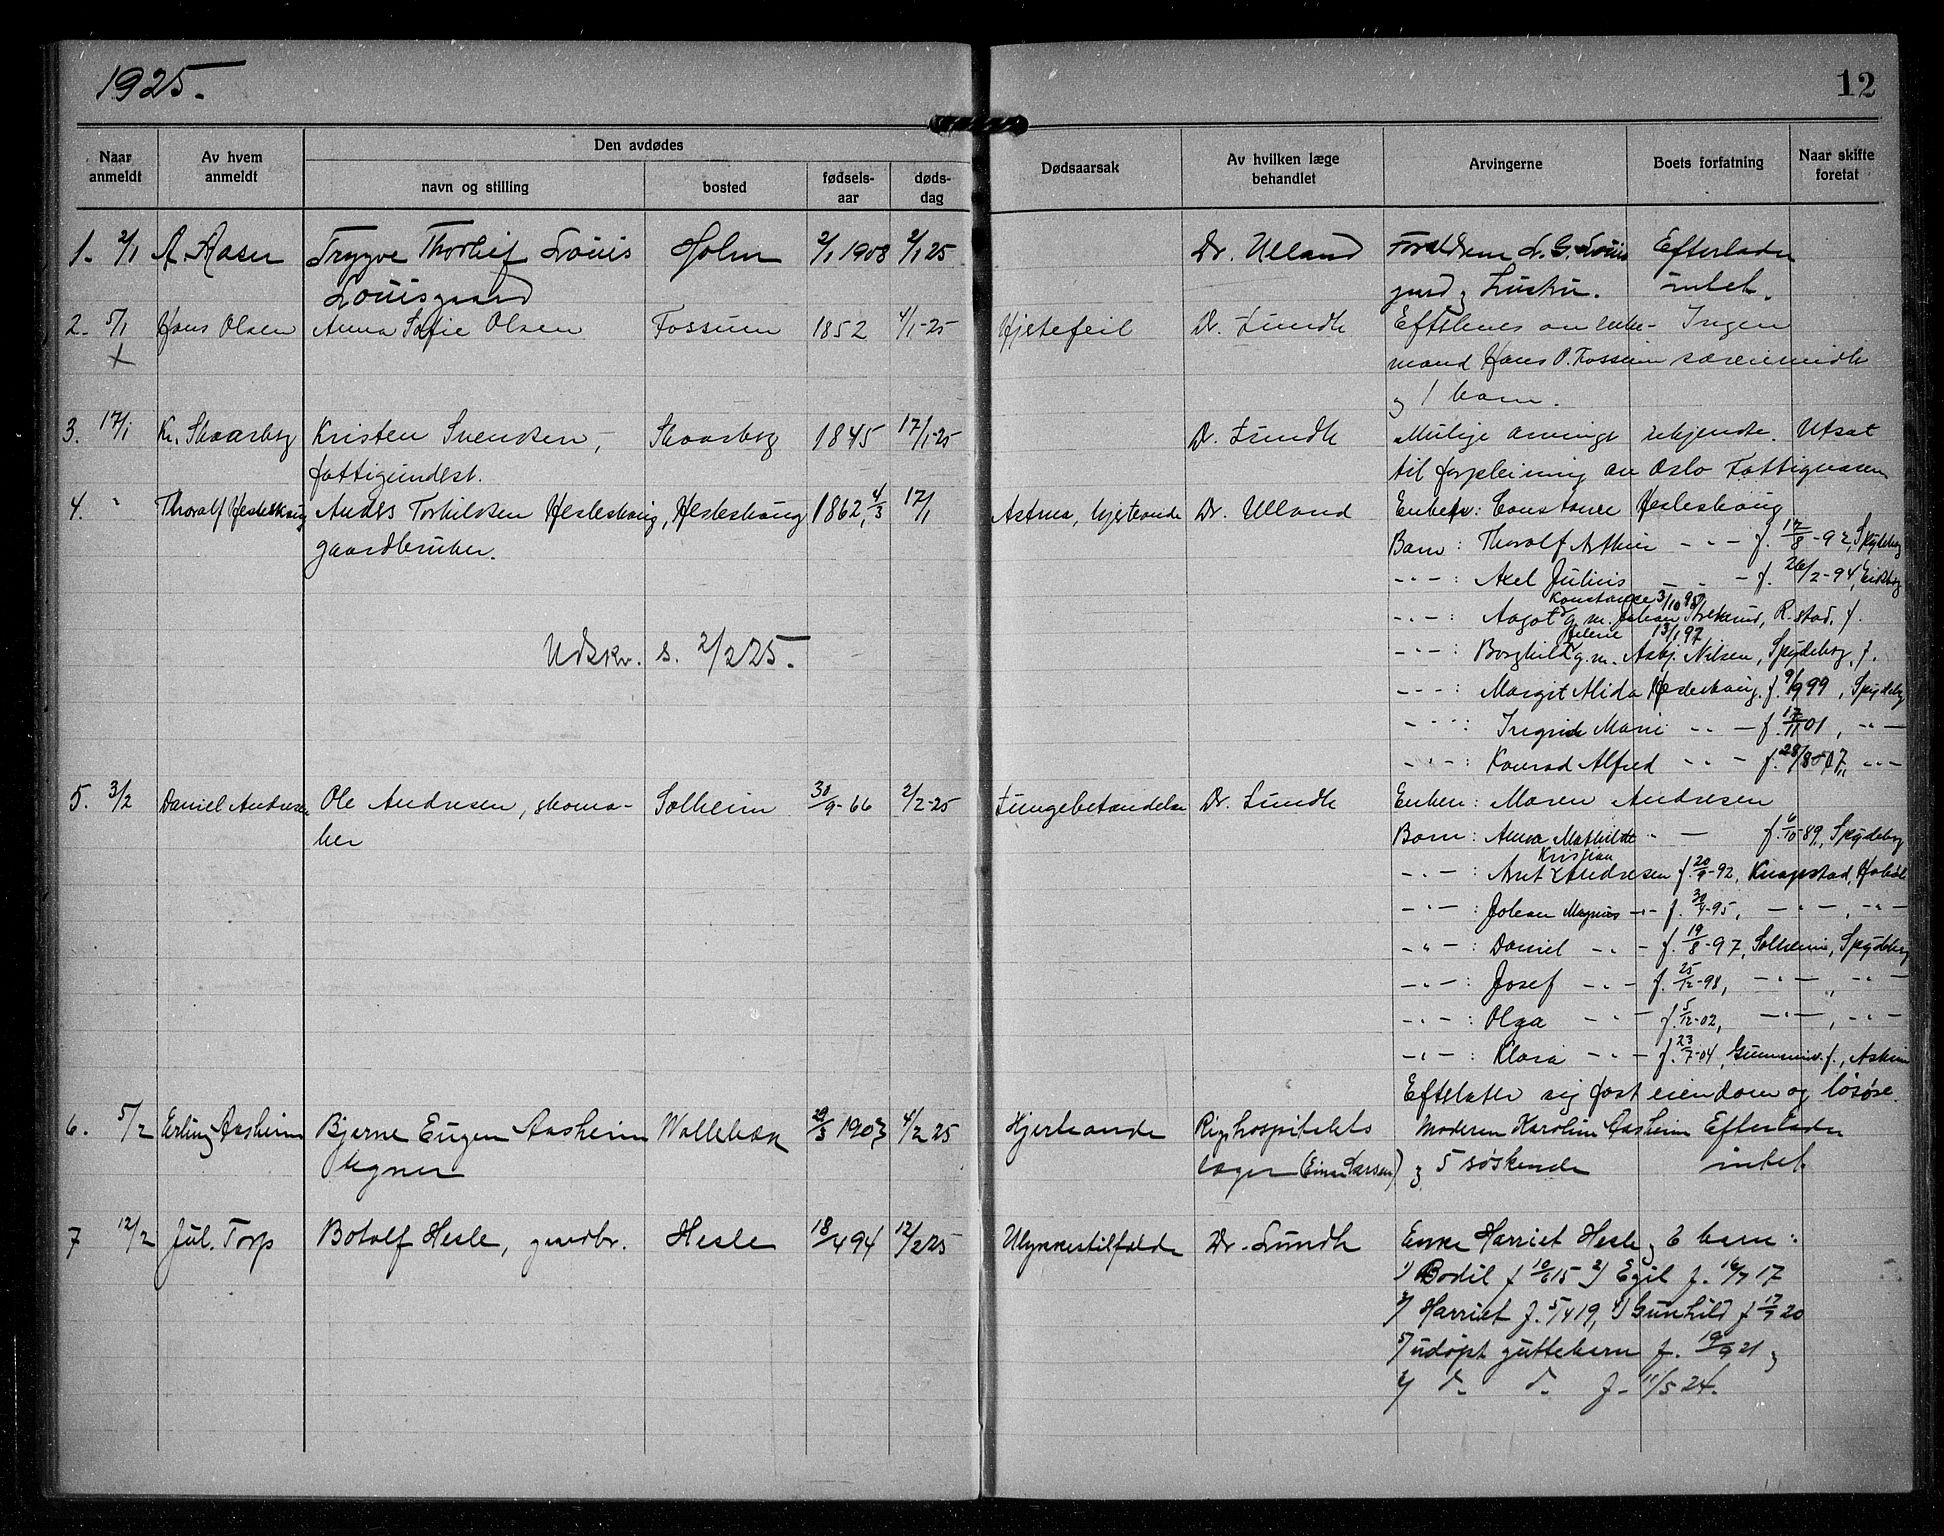 1925.
12
Naar anmeldt
Av hvem anmeldt
Den avdødes
navn og stilling
bosted
fødsels-aar
døds-dag
Dødsaarsak
Av hvilken læge behandlet
Arvingerne
Boets forfatning
Naar skifte foretat
1. 2/1 A. Aaser Trygve Thorleif Louis Holm 2/1 1908 2/1 25 Dr. Ulland Foreldrene L. G. Louis Efterlader
Louisgaard gaard og intet.
2. 5/1 Hans Olsen Anna Sofie Olsen Fossum 1852 4/1-25 Hjetefeil Dr. Lundh Eftlenes av enke- Ingen
+ mand Hans P. Fossum særeiemidle
og 1 barn.
3. 17/1 Kr. Skaarbog Kristen Svendsen, Skaarbog 1845 17/1-25 Dr. Lundh Mulige arvinge ukjendte. Utsat
fattigunderst. til forpleining av Oslo Fattigvæsen
4. " Thoralf Hesleskaug Andes Torkilsen Hesleskaug, Hesleskaug 1862, 4/3 17/1 Astma, hjerteonde Dr. Ulland Enken: Constance Hesleskaug
gaardbruker. Barn: Thoralf Arthur - " - f. 17/8-92, Spydebg
- " - : Axel Julius - " - f. 26/2-94, Eidsbg
Konstanse 3/10 95
- " - : Aagot g. m. Johan, R.stad, f.
Helene 13/1 97
Udskr. s. 2/2 25. - " - : Borghild g. m. Asbj. Nilsen, Spydebog, f.
- " - : Margit Alida Hesleskaug, f. 9/9 99, Spydebg
- " - : Ingrid Marie - " - f. 17/11 01, - " -
- " - : Konrad Alfred - " - f. 28/8-07, - " -
5. 3/2 Daniel Andresen Ole Andresen, skoma- Solheim 30/9-66 2/2-25 Lungebetændelse Dr. Lundh Enken: Maren Andresen
ker Barn: Anna Mathilde " - f. 6/10-89, Spydebog
Kristian
- " - : Arnt Andresen f. 20/9-92, Knapstad, Hobøl
- " - : Johan Magnus - " - f. 30/4-95, - " - , - " -
- " - : Daniel - " - f. 19/8-97, Solheim, Spydebg
- " - : Josef - " - f. 25/12-98, - " - , - " -
- " - : Olga - " - f. 5/12-02, - " - , - " -
- " - : Klara - " - f. 23/7-04, Gummiv.f., Askim
Eftelater sig fast eiendom og løsøre.
6. 5/2 Erling Aasheim Bjarne Eugen Aasheim Wollebæk 29/3 1903 4/2 25 Hjerteonde Rigshospitalets Moderen Karoline Aasheim Efterlader
Ugner læger (Einar Larsen) og 5 søskende intet
7 12/2 Jul. Torp Botolf Hesle, gaardbr. Hesle 18/4 94 12/2 25 Ulykkestilfælde Dr. Lundh Enke Harriet Hesle og 6 barn:
1) Bodil f 10/6 15 2) Egil f. 16/7 17
3) Harriet f. 5/4 19, 4) Gunhild f 17/7 20
5) udøpt guttebarn f. 19/9 21 og
6) d. d. f. 11/5 24.